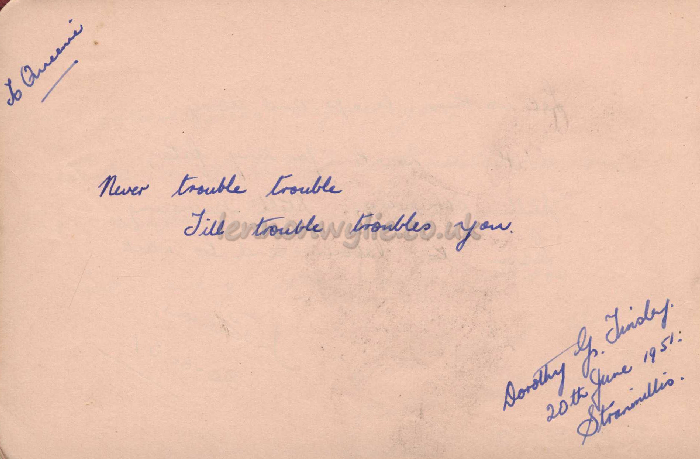 To Queenie
Never trouble trouble
Till trouble troubles you.
lennonwylie.co.uk
Dorothy G. Tinsley.
20th June 1951.
Stranmillis.